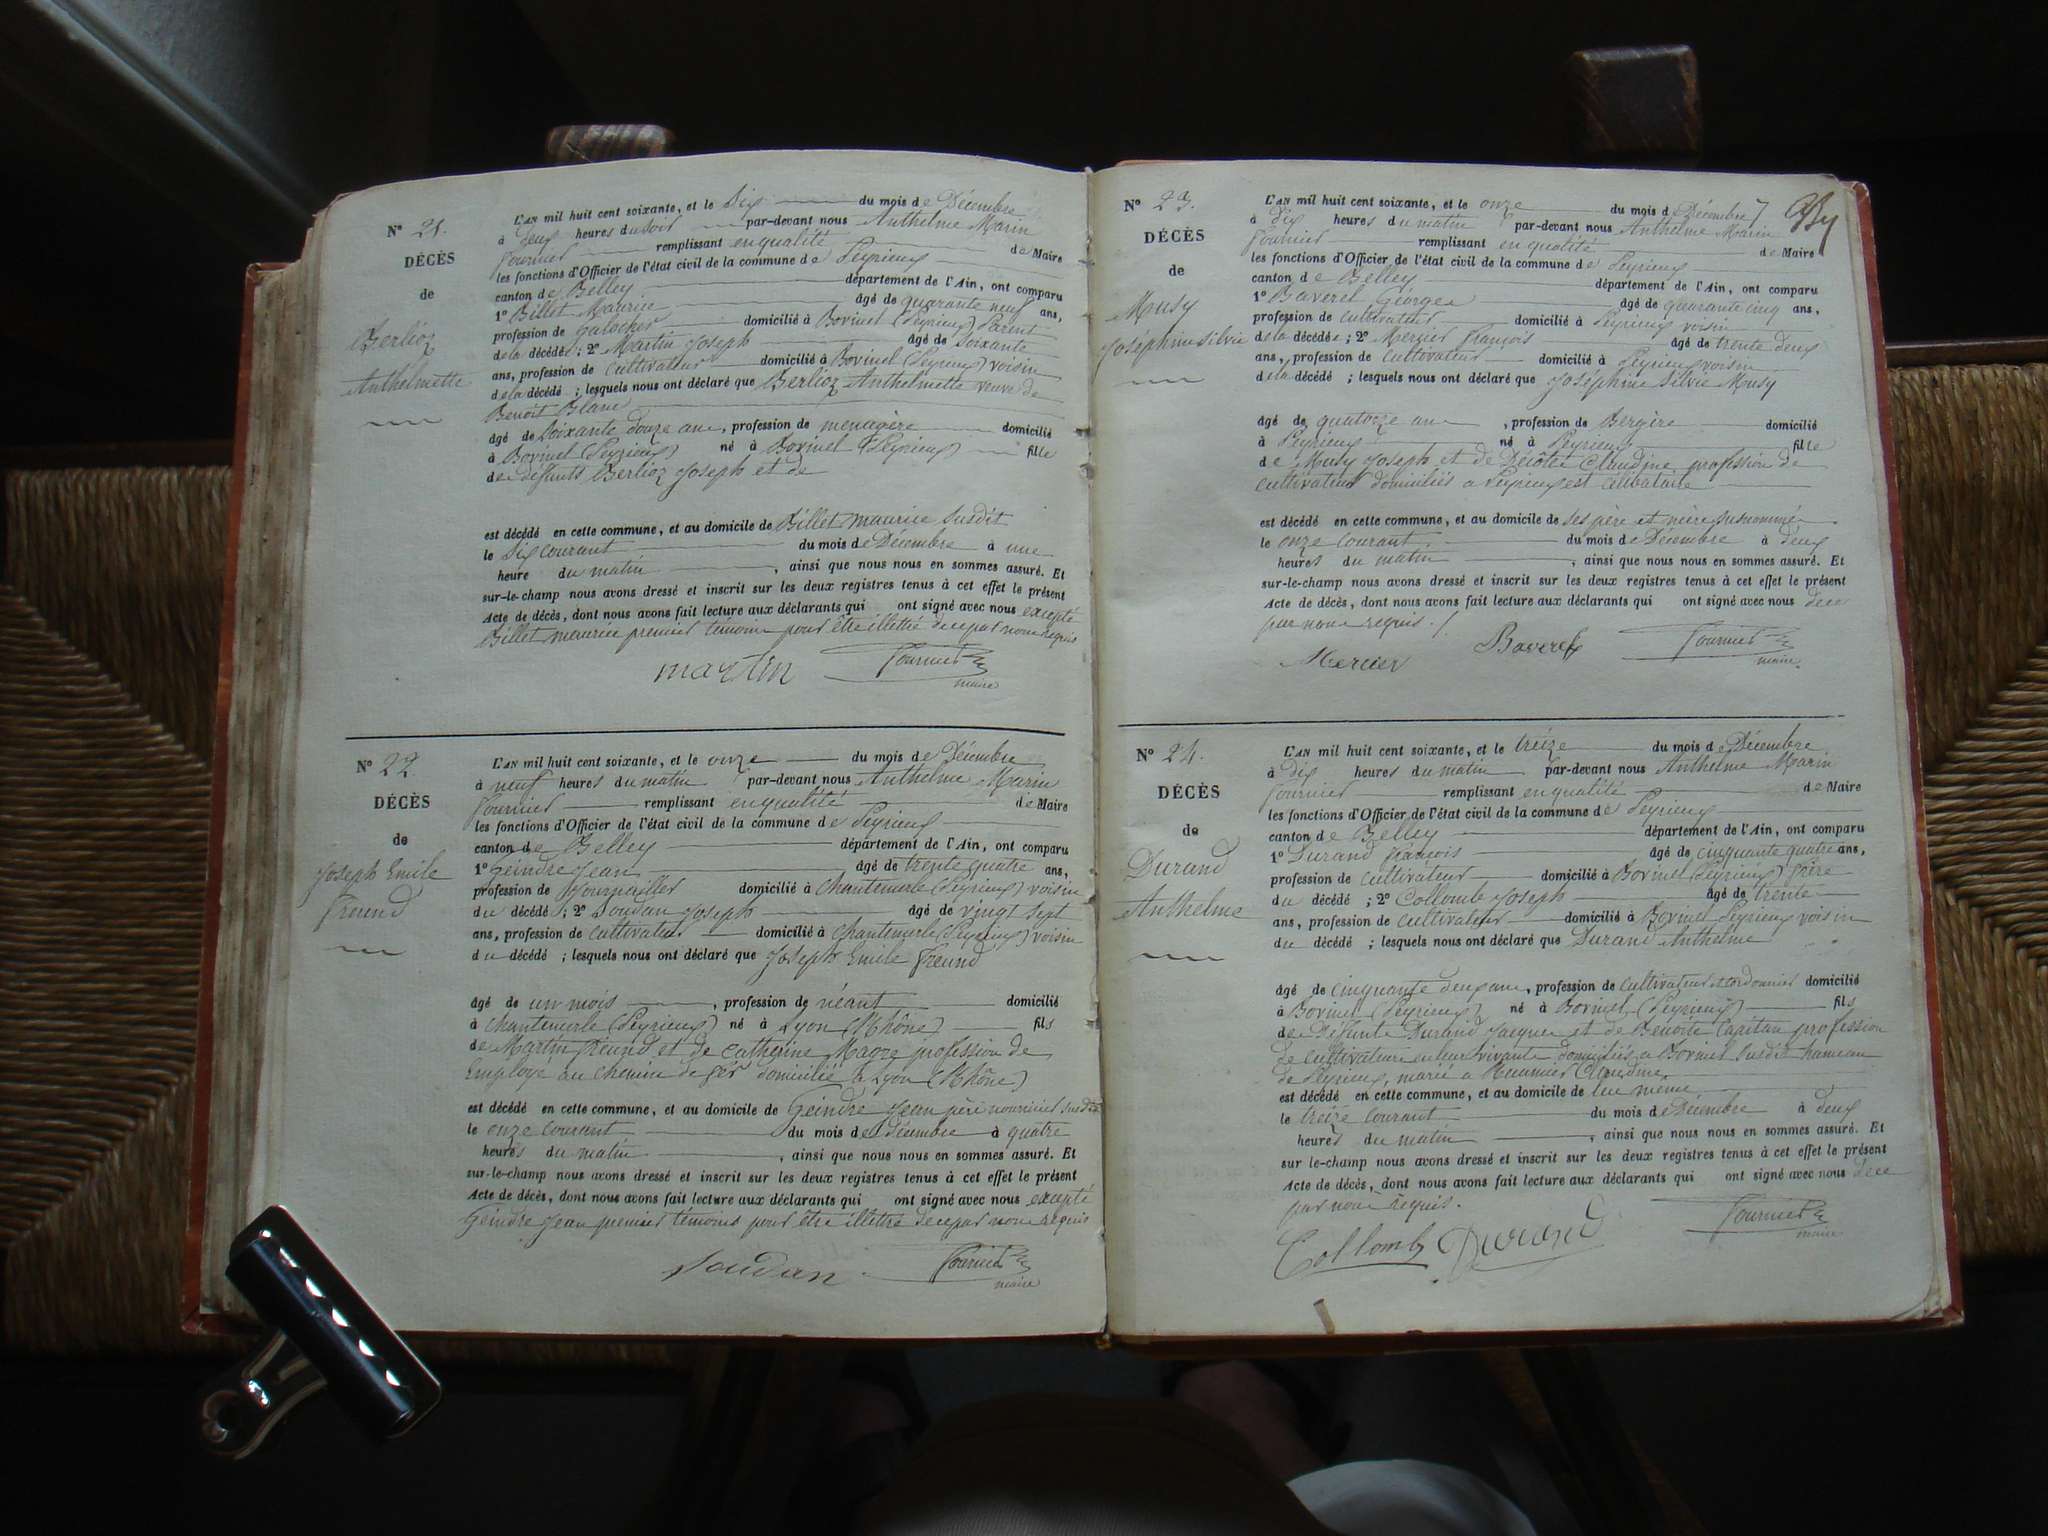 N° 21.
DÉCÈS
de
Berlioz
Anthelmette
L'AN mil huit cent soixante, et le Six du mois de Décembre
à deux heures du soir par-devant nous Anthelme Marin
Fournier remplissant en qualité de Maire
les fonctions d'Officier de l'état civil de la commune de Peyrieux
canton de Belley département de l'Ain, ont comparu
1° Billet Maurice âgé de quarante neuf ans,
profession de Galocher domicilié à Bovinel (Peyrieux) Parent
de la décédée ; 2° Martin Joseph âgé de soixante
ans, profession de cultivateur domicilié à Bovinel (Peyrieux) voisin
de la décédé ; lesquels nous ont déclaré que Berlioz Anthelmette veuve de
Benoit Blanc
âgé de soixante douze ans, profession de menagère domicilié
à Bovinel (Peyrieux) né à Bovinel (Peyrieux) fille
de défunts Berlioz Joseph et de
est décédé en cette commune, et au domicile de Billet maurice susdit
le Six courant du mois de Décembre à une
heure du matin , ainsi que nous nous en sommes assuré. Et
sur-le-champ nous avons dressé et inscrit sur les deux registres tenus à cet effet le présent
Acte de décès, dont nous avons fait lecture aux déclarants qui ont signé avec nous excepté
Billet maurice premier témoin pour être illettré de ce par nous requis
Martin Fournier
maire
N° 22
DÉCÈS
de
Joseph Emile
Freund
L'AN mil huit cent soixante, et le onze du mois de Décembre
à neuf heures du matin par-devant nous Anthelme Marin
Fournier remplissant en qualité de Maire
les fonctions d'Officier de l'état civil de la commune de Peyrieux
canton de Belley département de l'Ain, ont comparu
1° Geindre Jean âgé de trente quatre ans,
profession de domicilié à Chantemerle (Peyrieux) voisin
du décédé ; 2° Soudan Joseph âgé de vingt sept
ans, profession de cultivateur domicilié à Chantemerle (Peyrieux) voisin
du décédé ; lesquels nous ont déclaré que Joseph Emile Freund
âgé de un mois , profession de néant domicilié
à Chantemerle (Peyrieux) né à Lyon (Rhône) fils
de Martin Freund et de Catherine profession de
Employé au chemin de fer domicilié à Lyon (Rhône)
est décédé en cette commune, et au domicile de Geindre Jean père nourricier susdit
le onze courant du mois de Décembre à quatre
heures du matin , ainsi que nous nous en sommes assuré. Et
sur-le-champ nous avons dressé et inscrit sur les deux registres tenus à cet effet le présent
Acte de décès, dont nous avons fait lecture aux déclarants qui ont signé avec nous excepté
Geindre Jean premier témoins pour être illettré de ce par nous requis
Soudan Fournier
maire
N° 23.
DÉCÈS
de
Musy
Joséphine Silvie
L'AN mil huit cent soixante, et le onze du mois de Décembre
à dix heures du matin par-devant nous Anthelme Marin
Fournier remplissant en qualité de Maire
les fonctions d'Officier de l'état civil de la commune de Peyrieux
canton de Belley département de l'Ain, ont comparu
1° Baverel Georges âgé de quarante cinq ans,
profession de cultivateur domicilié à Peyrieux voisin
de la décédée ; 2° Mercier François âgé de trente deux
ans, profession de cultivateur domicilié à Peyrieux voisin
de la décédé ; lesquels nous ont déclaré que Joséphine Silvie Musy
âgé de quatorze ans , profession de Bergère domicilié
à Peyrieux né à Peyrieux fille
de Musy Joseph et de Décôte Claudine profession de
cultivateur domiciliés a Peyrieux est célibataire
est décédé en cette commune, et au domicile de ses père et mère susnommés
le onze courant du mois de Décembre à deux
heures du matin , ainsi que nous nous en sommes assuré. Et
sur-le-champ nous avons dressé et inscrit sur les deux registres tenus à cet effet le présent
Acte de décès, dont nous avons fait lecture aux déclarants qui ont signé avec nous de ce
par nous requis./
Mercier Baverel Fournier
maire.
N° 24.
DÉCÈS
de
Durand
Anthelme
L'AN mil huit cent soixante, et le treize du mois de Décembre
à dix heures du matin par-devant nous Anthelme Marin
Fournier remplissant en qualité de Maire
les fonctions d'Officier de l'état civil de la commune de Peyrieux
canton de Belley département de l'Ain, ont comparu
1° Durand François âgé de cinquante quatre ans,
profession de cultivateur domicilié à Bovinel (Peyrieux) frère
du décédé ; 2° Collomb Joseph âgé de trente
ans, profession de cultivateur domicilié à Bovinel Peyrieux voisin
du décédé ; lesquels nous ont déclaré que Durand Anthelme
âgé de cinquante deux ans, profession de cultivateur et cordonnier domicilié
à Bovinel (Peyrieux) né à Bovinel (Peyrieux) fils
de Défunts Durand Jacques et de Benoite Capitan profession
de cultivateurs en leur vivants domiciliés a Bovinel susdit hameau
de Peyrieux, marié a Meunier Claudine
est décédé en cette commune, et au domicile de lui même
le treize courant du mois de Décembre à deux
heures du matin , ainsi que nous nous en sommes assuré. Et
sur-le-champ nous avons dressé et inscrit sur les deux registres tenus à cet effet le présent
Acte de décès, dont nous avons fait lecture aux déclarants qui ont signé avec nous de ce
par nous requis.
Collomb Durand Fournier
maire